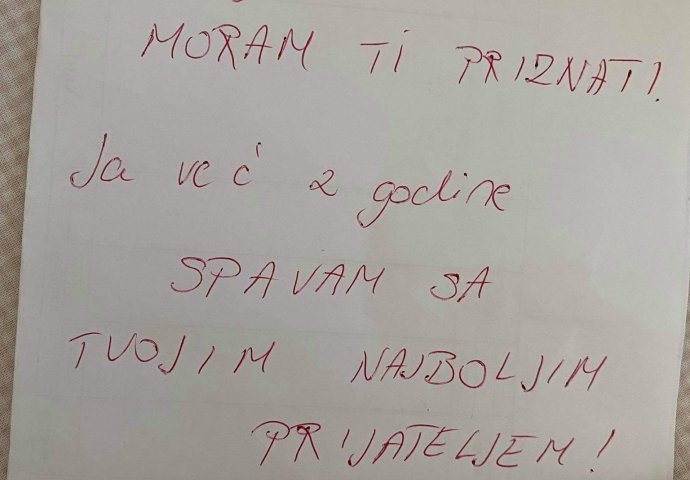 MORAM TI PRIZNATI!
Ja već 2 godine
SPAVAM SA
TVOJIM NAJBOLJIM
PRIJATELJEM!